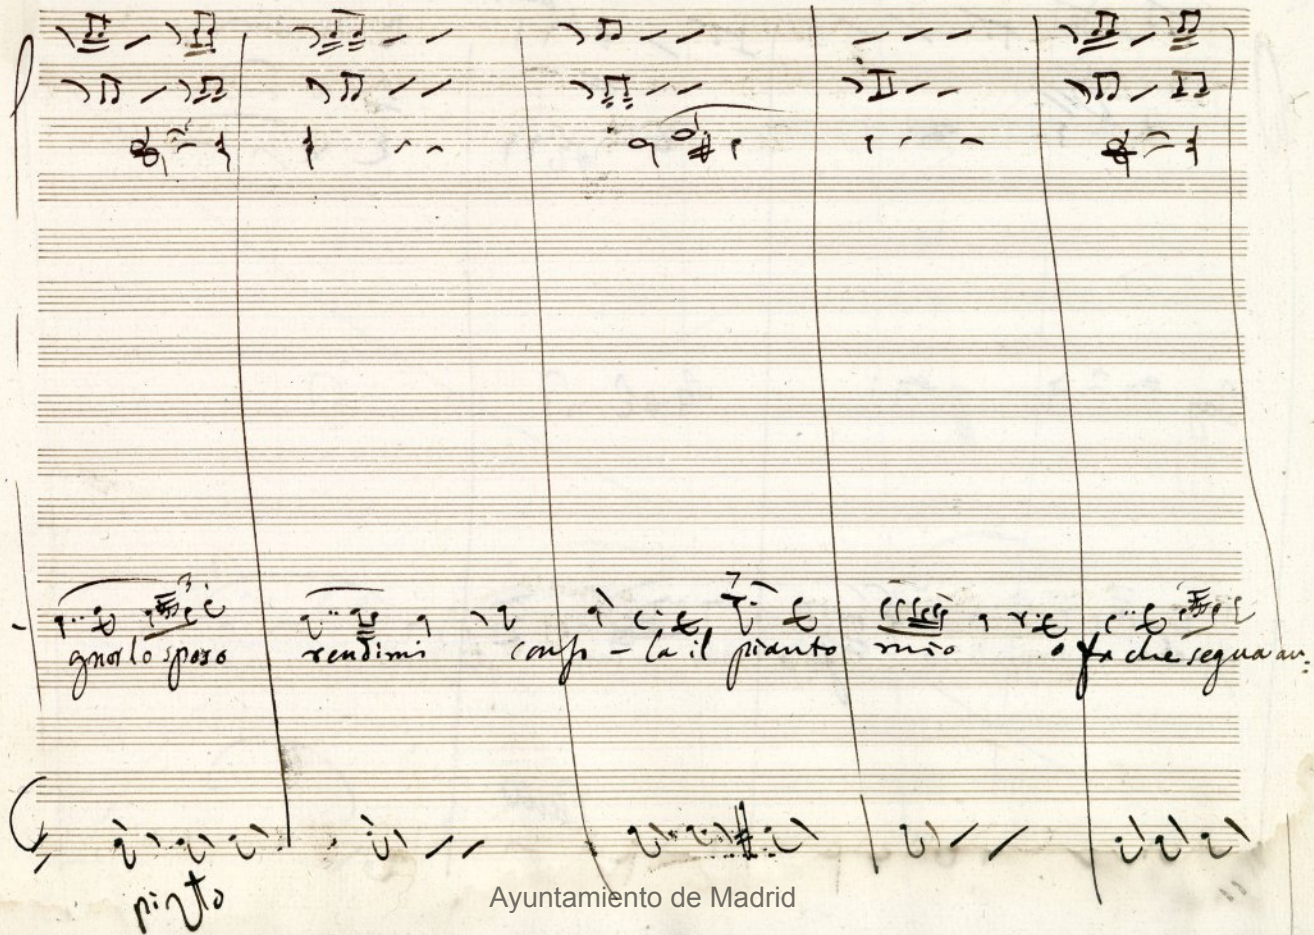 gnor lo sposo rendimi conso - la il pianto mio o fa che segua an:
pizto
Ayuntamiento de Madrid